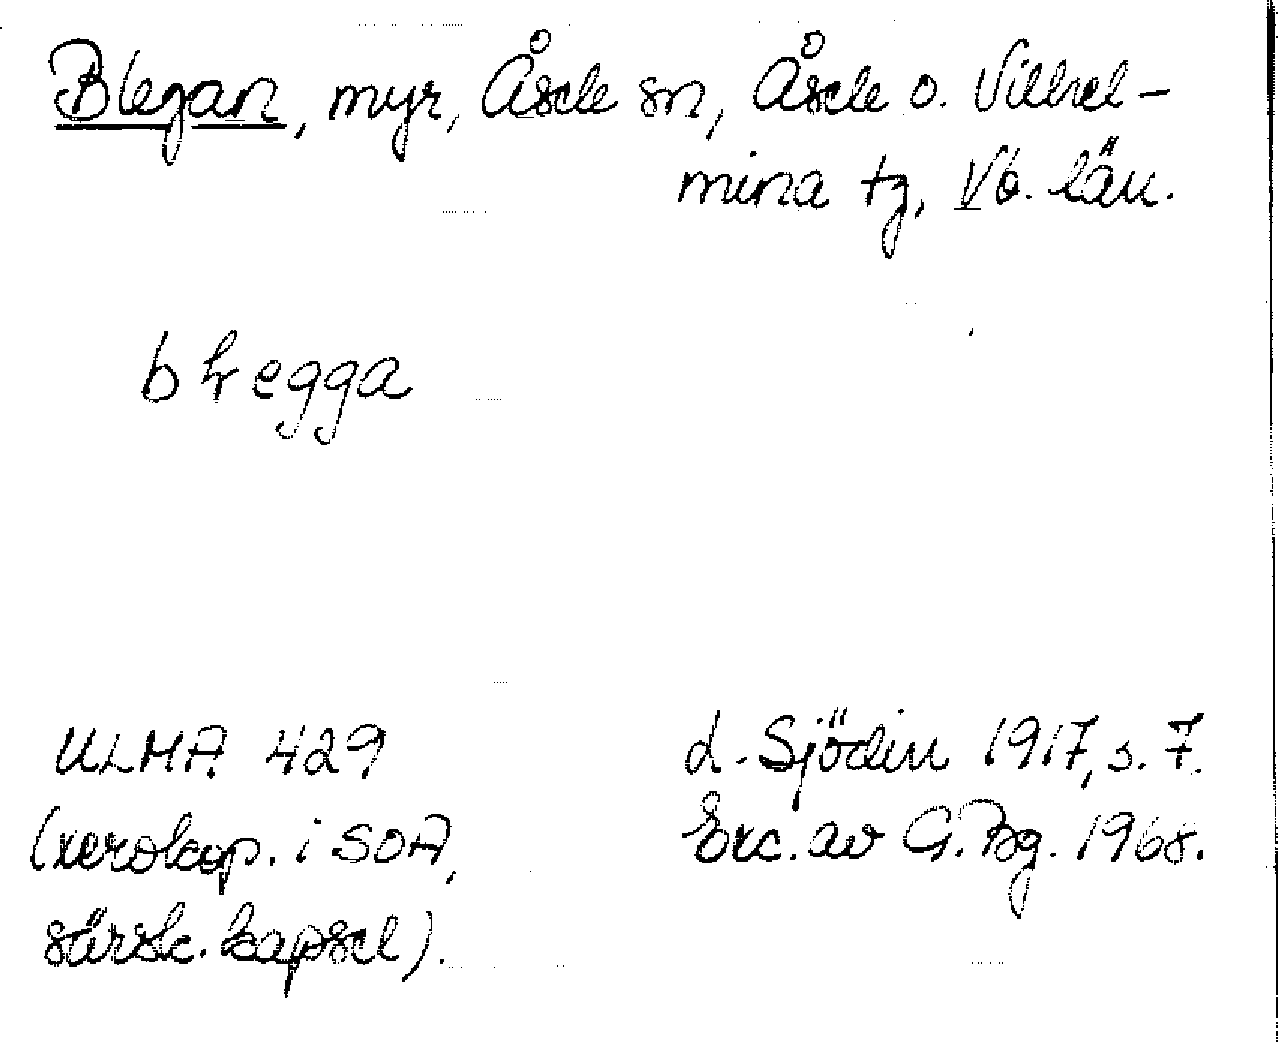 Blegan, myr, Åsele sn, Åsele o. Vilhel-
mina tg, Vb. län.
ULMA 429
(xerokop. i SOA,
särsk. kapsel).
L. Sjödin 1917, s. 7.
Exc. av G. Bg. 1968.